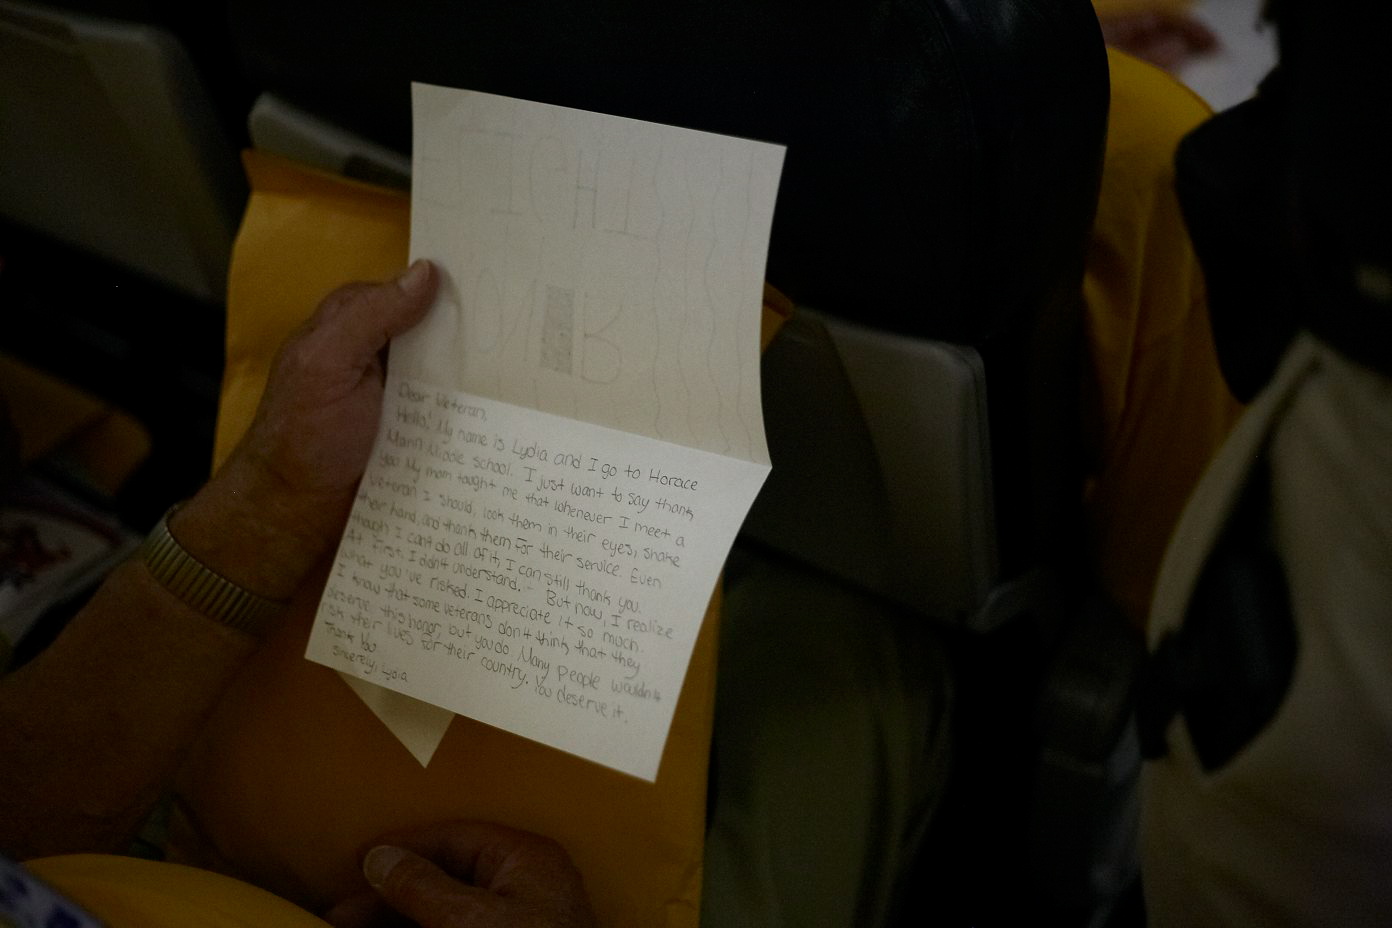 FIGHT
Dear Veteran,
Hello! My name is Lydia and I go to Horace
Mann Middle school. I just want to say thank
you. My mom taught me that whenever I meet a
veteran I should, look them in their eyes, shake
their hand, and thank them for their service. Even
though I can't do all of it, I can still thank you.
At first, I didn't understand. But now, I realize
what you've risked. I appreciate it so much.
I know that some veterans don't think that they
deserve this honor, but you do. Many people wouldn't
risk their lives for their country. You deserve it.
Thank You
sincerely, Lydia